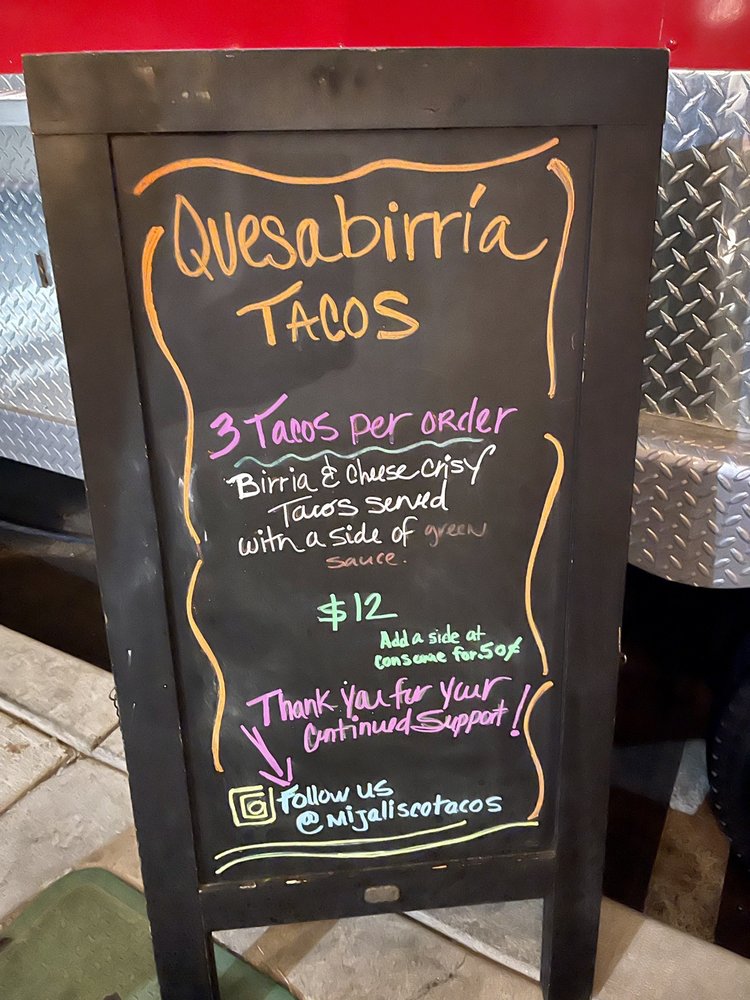 Quesabirría
TACOS
3 Tacos per order
Birria & Cheese Crisy
Tacos served
with a side of green
sauce.
$12
Add a side at
consome for .50¢
Thank you for your
Continued Support!
Follow us
@Mijaliscotacos